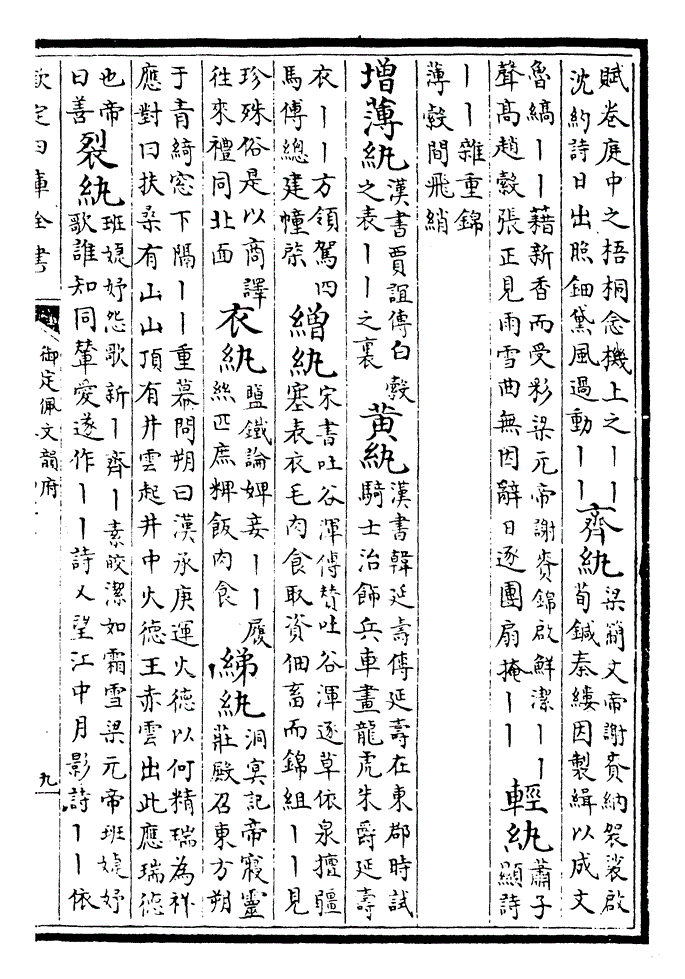 賦卷庭中之梧桐念機上之丨丨
沈約詩日出照鈿黛風過動丨丨
齊紈
梁簡文帝謝賚納袈裟啟
荀鍼秦縷因製緝以成文
魯縞丨丨藉新香而受彩梁元帝謝賚錦啟鮮潔丨丨
聲高趙縠張正見雨雪曲無因辭日逐團扇掩丨丨
輕紈
蕭子
顯詩
丨丨雜重錦
薄縠間飛綃
增薄紈
漢書賈誼傳白縠
之表丨丨之裏
黃紈
漢書韓延壽傳延壽在東郡時試
騎士治飾兵車畫龍虎朱爵延壽
衣丨丨方領駕四
馬傅總建幢棨
繒紈
宋書吐谷渾傳贊吐谷渾逐草依泉擅疆
塞表衣毛肉食取資佃畜而錦組丨丨見
珍殊俗是以商譯
往來禮同北面
衣紈
鹽鐵論婢妾丨丨履
絲匹庶粺飯肉食
綈紈
洞冥記帝寢靈
莊殿召東方朔
于青綺窓下隔丨丨重幕問朔曰漢承庚運火德以何精瑞為祥
應對曰扶桑有山山頂有井雲起井中火德王赤雲出此應瑞德
也帝
曰善
裂紈
班婕妤怨歌新丨齊丨素皎潔如霜雪梁元帝班婕妤
歌誰知同輦愛遂作丨丨詩又望江中月影詩丨丨依
欽定四庫全書
御定佩文韻府
九